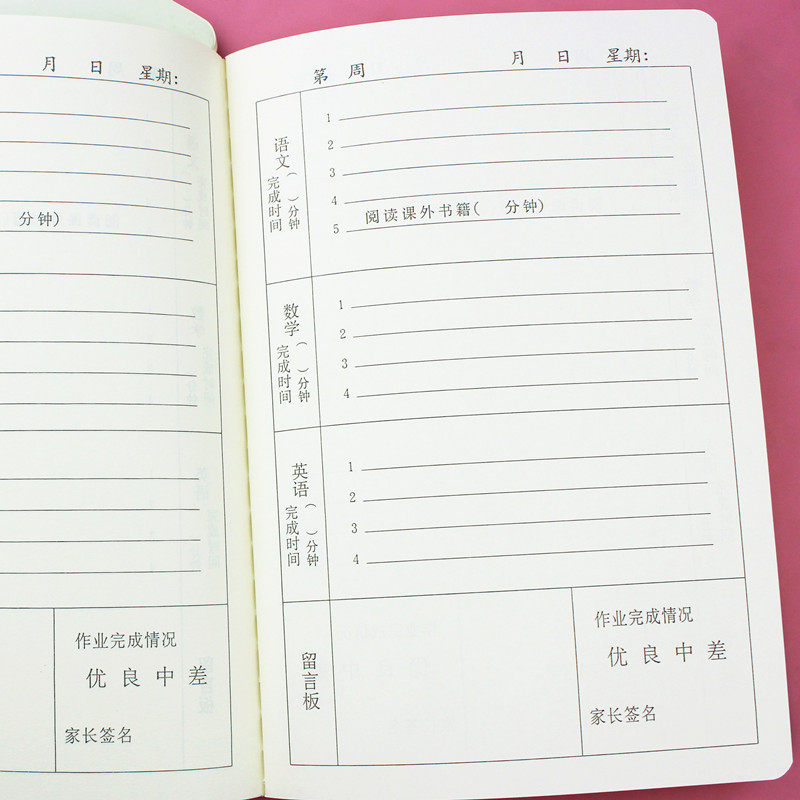 月 日 星期:
分钟)
作业完成情况
优 良 中 差
家长签名
第 周 月 日 星期:
语文
完成时间
( )分钟
1
2
3
4
5 阅读课外书籍( 分钟)
数学
完成时间
( )分钟
1
2
3
4
英语
完成时间
( )分钟
1
2
3
4
留言板
作业完成情况
优 良 中 差
家长签名